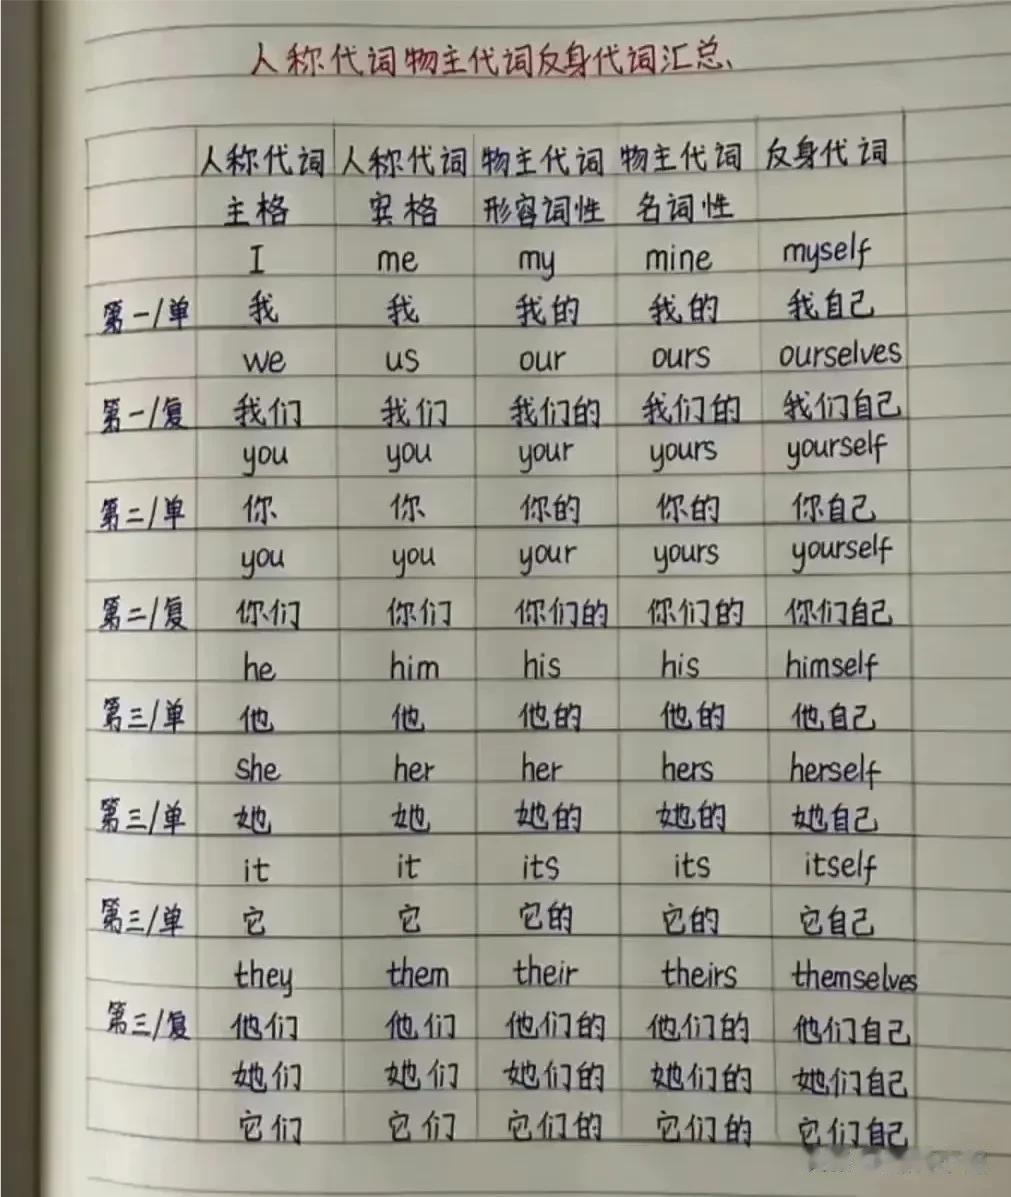 人称代词物主代词反身代词汇总、
人称代词 人称代词 物主代词 物主代词 反身代词
主格 宾格 形容词性 名词性
I me my mine myself
第一/单 我 我 我的 我的 我自己
we us our ours ourselves
第一/复 我们 我们 我们的 我们的 我们自己
you you your yours yourself
第二/单 你 你 你的 你的 你自己
you you your yours yourself
第二/复 你们 你们 你们的 你们的 你们自己
he him his his himself
第三/单 他 他 他的 他的 他自己
she her her hers herself
第三/单 她 她 她的 她的 她自己
it it its its itself
第三/单 它 它 它的 它的 它自己
they them their theirs themselves
第三/复 他们 他们 他们的 他们的 他们自己
她们 她们 她们的 她们的 她们自己
它们 它们 它们的 它们的 它们自己